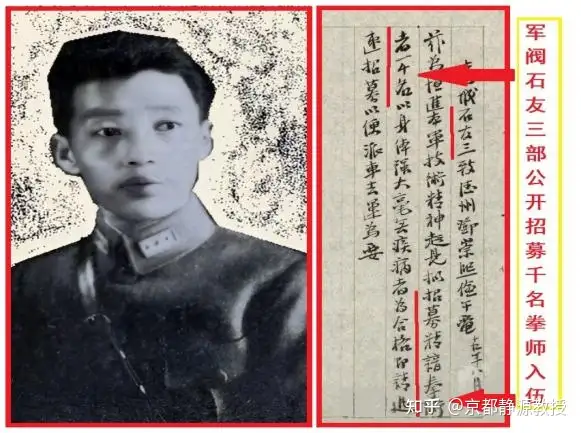 军阀石友三部公开招募千名拳师入伍
石友三致滄州鄧崇熙儉午電 十五年八月
茲為促進本軍技術精神起見擬招募精諳拳術
者一千名以身体强大毫無疾病者為合格即請迅
速招募以便派車去運為要
知乎 @京都静源教授